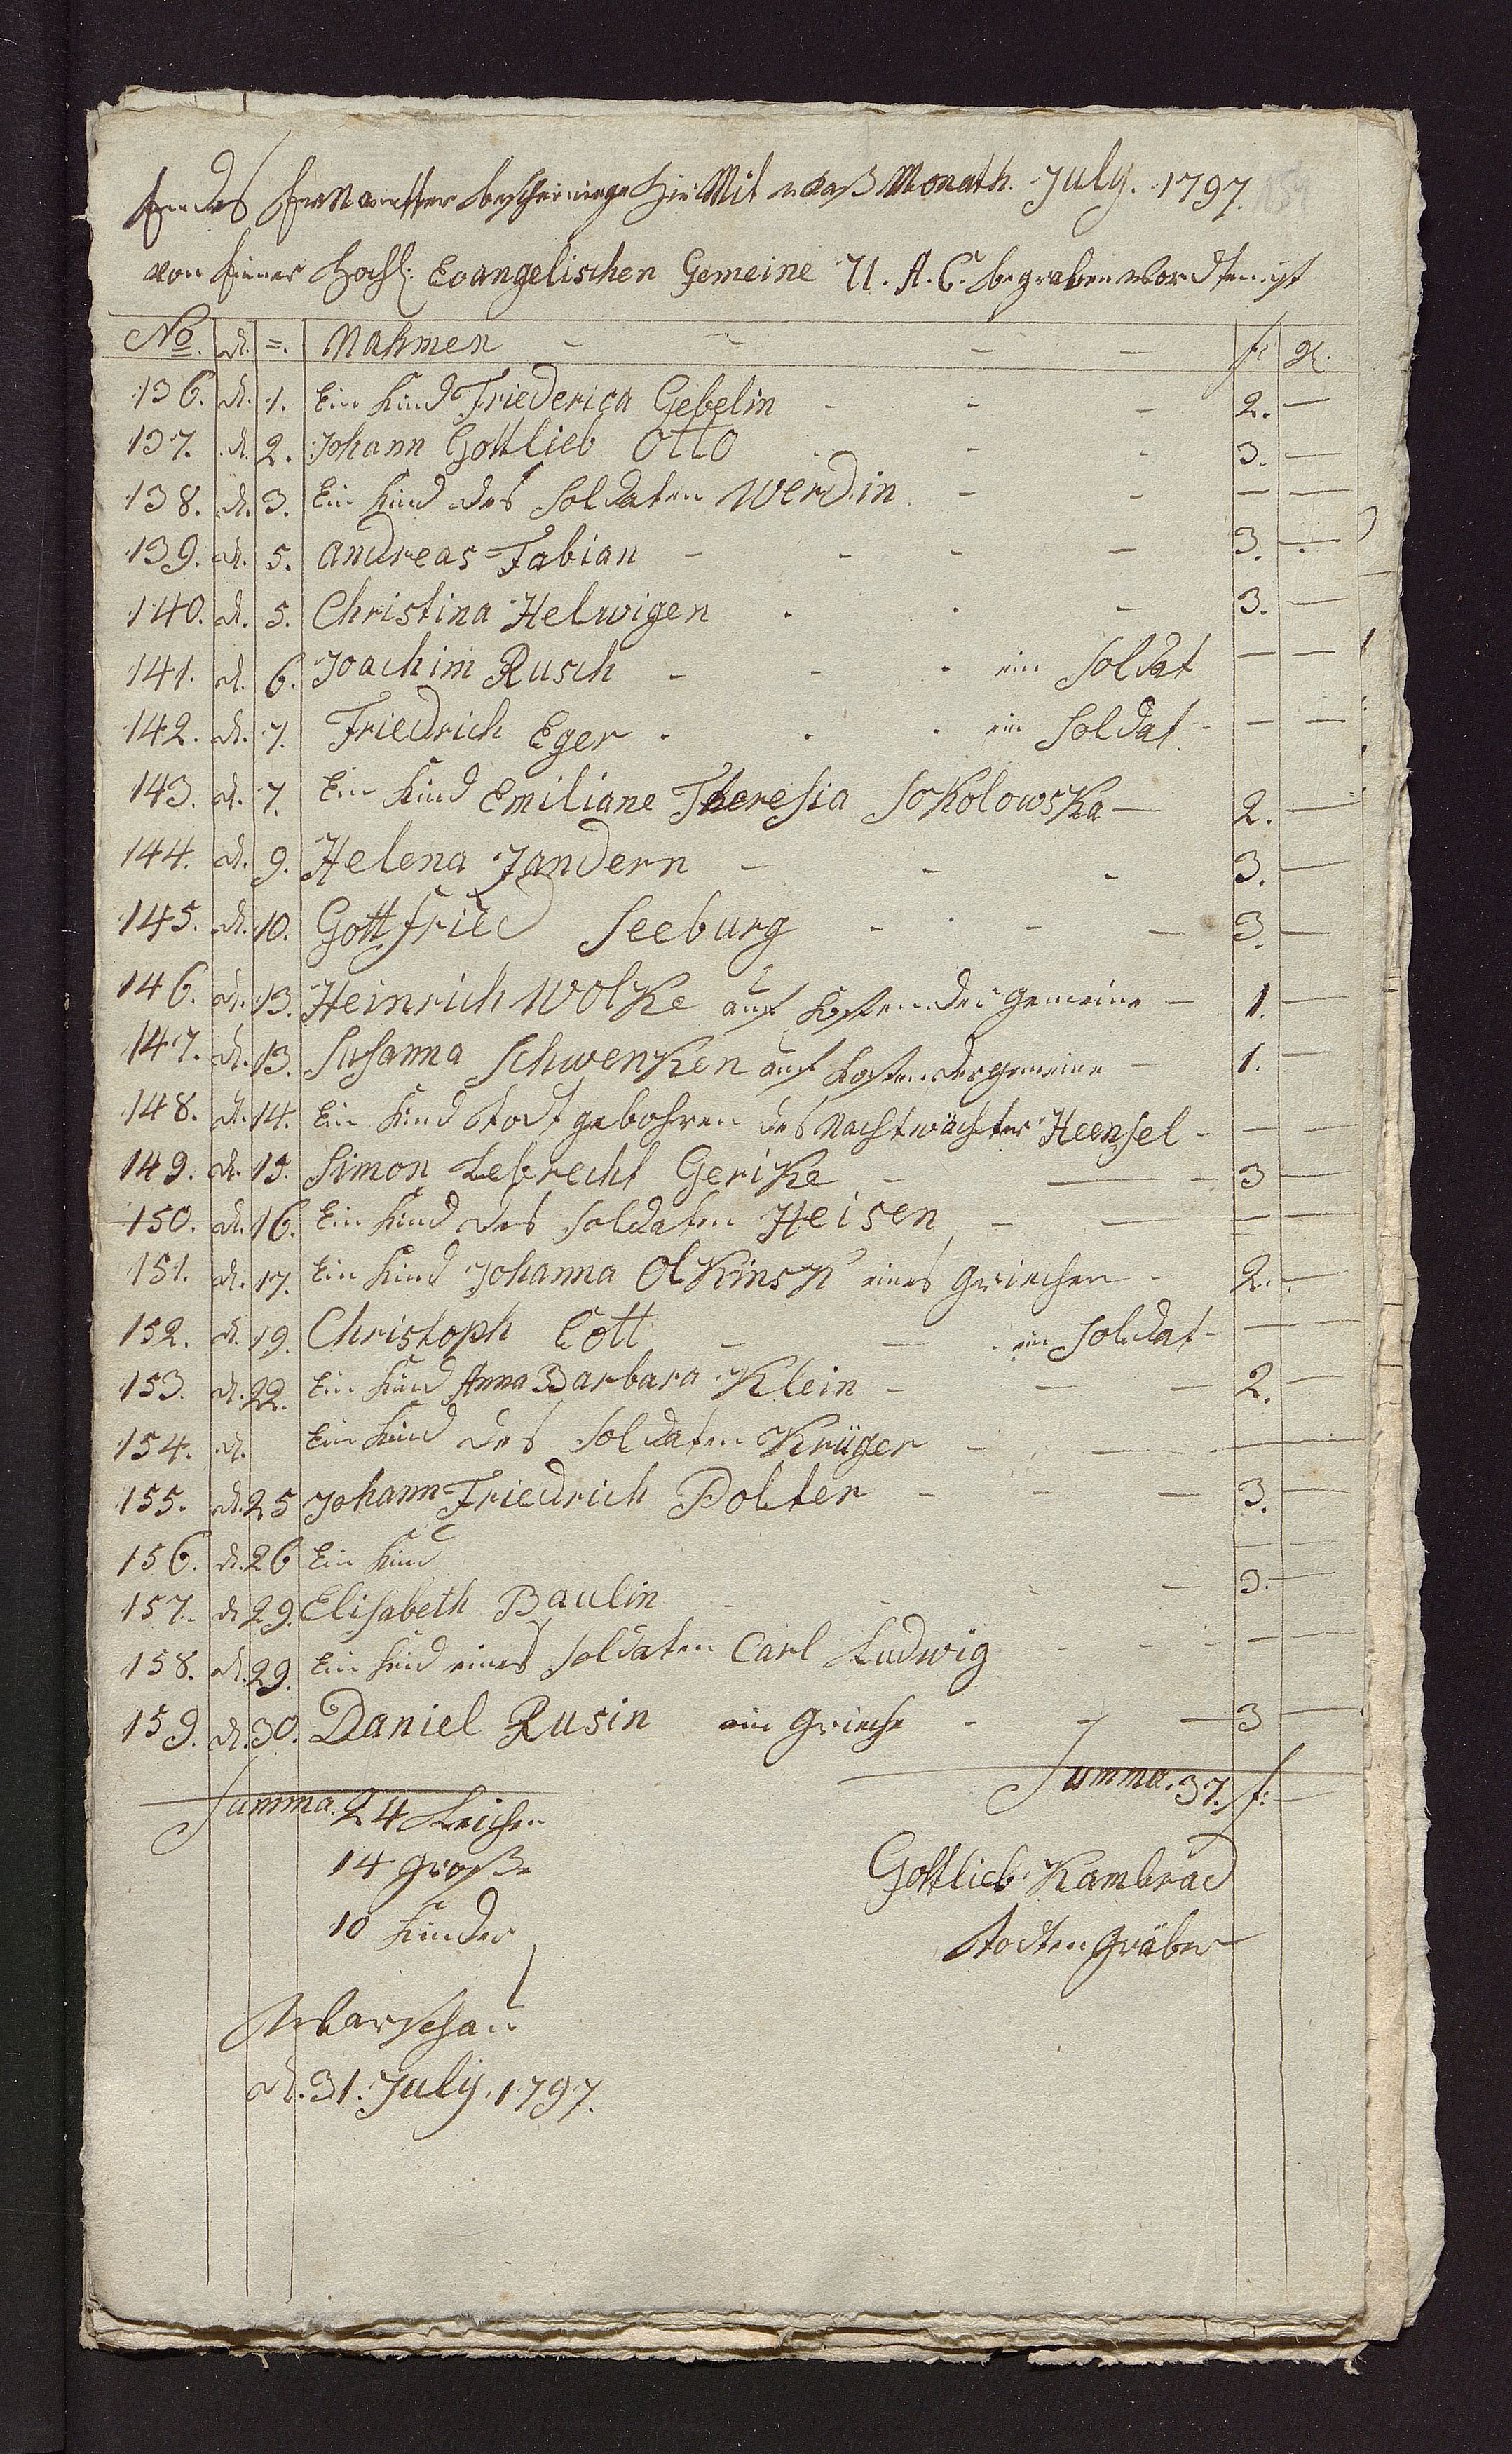 Endes bescheinige Hir Mit was Monath. July. 1797.
von Einer Hochl: Evangelischen Gemeine U. A. C. begraben worden ist
No. d. =. Nahmen - - - - f: gl:
136. d. 1. Ein Kind Friederica Gebelin - - - 2. —
137. d. 2. Johann Gottlieb Otto - - - 3. —
138. d. 3. Ein Kind des Soldaten Werdin - - — —
139. d. 5. Andreas Fabian - - - - 3. —
140. d. 5. Christina Helwigen - - - 3. —
141. d. 6. Joachim Rusch - - - ein Soldat — —
142. d. 7. Friedrich Eger - - - ein Soldat - — —
143. d. 7. Ein Kind Emiliane Theresia Sokolowska — 2. —
144. d. 9. Helena Jandern - - - 3. —
145. d. 10. Gottfried Seeburg - - - 3. —
146. d. 13. Heinrich Wolke auf Kosten der Gemeine - 1. —
147. d. 13. Susanna Schwenken auf Kosten der gemeine - 1. —
148. d. 14. Ein Kind Todt gebohren des Nachtwächter Heensel - — —
149. d. 15. Simon Lebrecht Gerike - — - 3 —
150. d. 16. Ein Kind des Soldaten Heisen - — — —
151. d. 17. Ein Kind Johanna Olkinsk eines Griechen - 2. -
152. d. 19. Christoph Cott - — - ein Soldat - — —
153. d. 22. Ein Kind Anna Barbara Klein - - - 2. —
154. d. Ein Kind des Soldaten Krüger - — — —
155. d. 25 Johann Friedrich Polter - - — 3. —
156. d. 26 Ein Kind — —
157. d. 29. Elisabeth Baulin - - - — 3. —
158. d. 29. Ein Kind eines Soldaten Carl Ludwig - - - — —
159. d. 30. Daniel Rusin ein Grieche - - — 3 —
Summa. 24 Leichen Summa. 37. f: —
14 Große Gottlieb Kambrad
10 Kinder Todten Gräber
Warschau
d. 31. July. 1797.